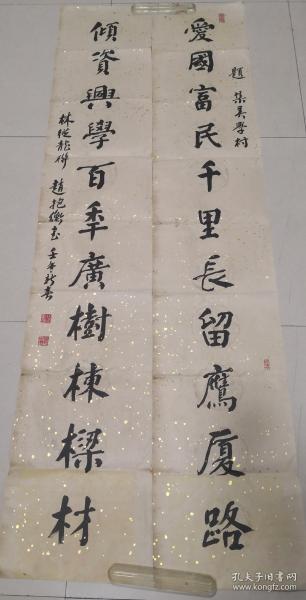 題 集美學村
愛國富民千里長留鷹厦路
傾資興學百年廣樹棟樑材
林從龍併 趙抱衡書 壬午新春
孔夫子旧书网